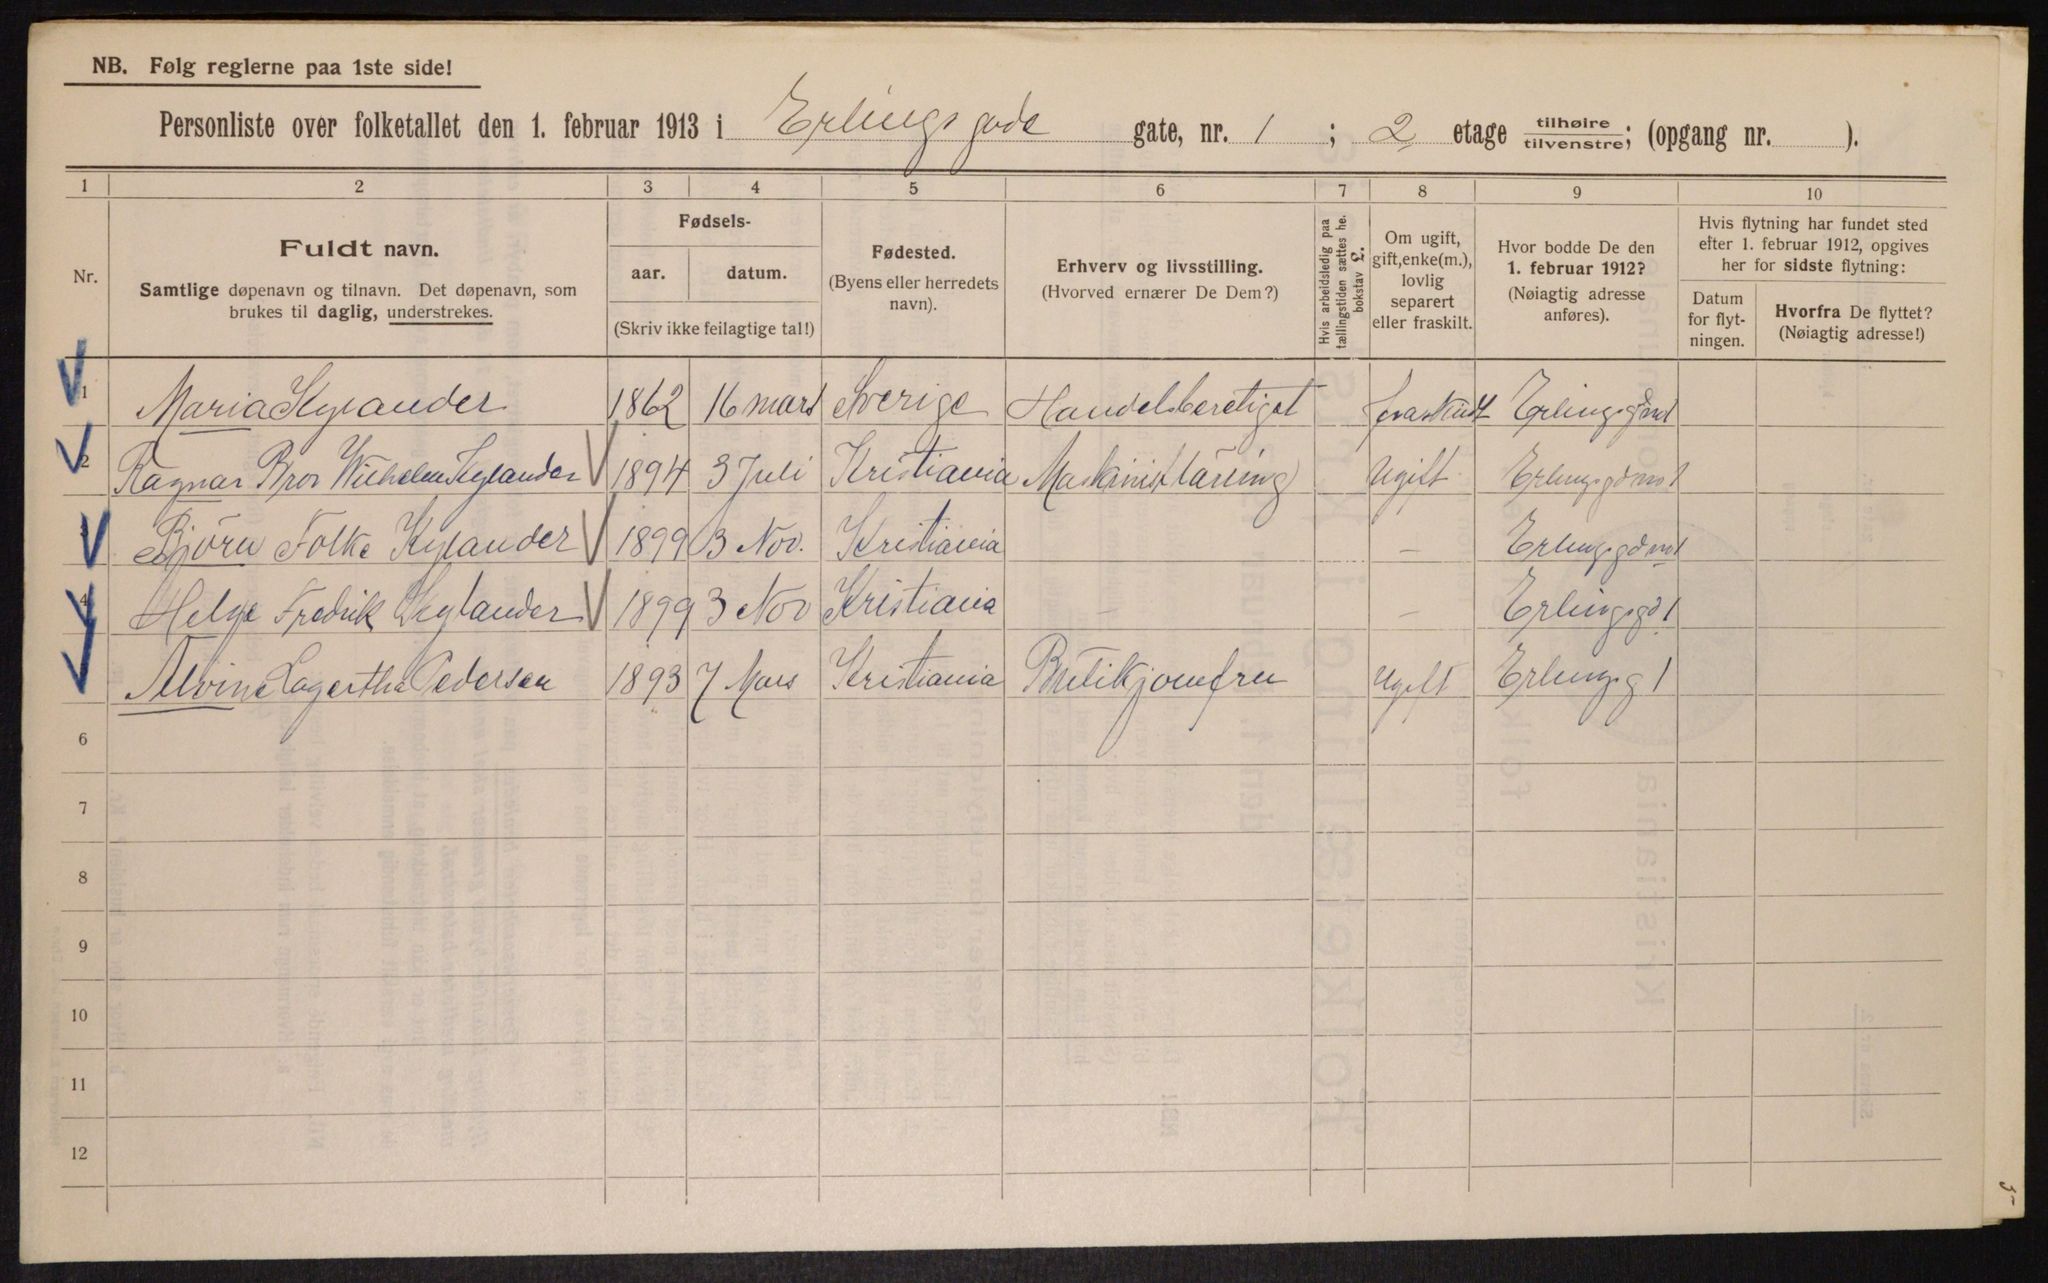 NB. Følg reglerne paa 1ste side!
Personliste over folketallet den 1. februar 1913 i Erlingsgade gate, nr. 1 ; 2 etage tilhøire/tilvenstre; (opgang nr. ).
1 2 3 4 5 6 7 8 9 10
Nr.
Fuldt navn.
Samtlige døpenavn og tilnavn. Det døpenavn, som
brukes til daglig, understrekes.
Fødsels-
aar. datum.
(Skriv ikke feilagtige tal!)
Fødested.
(Byens eller herredets
navn).
Erhverv og livsstilling.
(Hvorved ernærer De Dem?)
Hvis arbeidsledig paa
tællingstiden sættes he.
bokstav £.
Om ugift,
gift, enke(m.),
lovlig
separert
eller fraskilt.
Hvor bodde De den
1. februar 1912?
(Nøiagtig adresse
anføres).
Hvis flytning har fundet sted
efter 1. februar 1912, opgives
her for sidste flytning:
Datum
for flyt-
ningen.
Hvorfra De flyttet?
(Nøiagtig adresse!)
1 Maria Kylander 1862 16 mars Sverige Handelsberetiget Erlingsgd no 1
2 Ragnar Bror Wilhelm Kylander 1894 3 Juli Kristiania Maskinist läring Ugift Erlingsgd no 1
3 Björn Folke Kylander 1899 3 Nov. Kristiania — Erlingsgd no 1
4 Helge Fredrik Kylander 1899 3 Nov Kristiania — — Erlingsgd 1
Alvine Lagertha Pedersen 1893 7 Mars Kristiania Butikjomfru Ugift Erlingsg 1
6
7
8
9
10
11
12